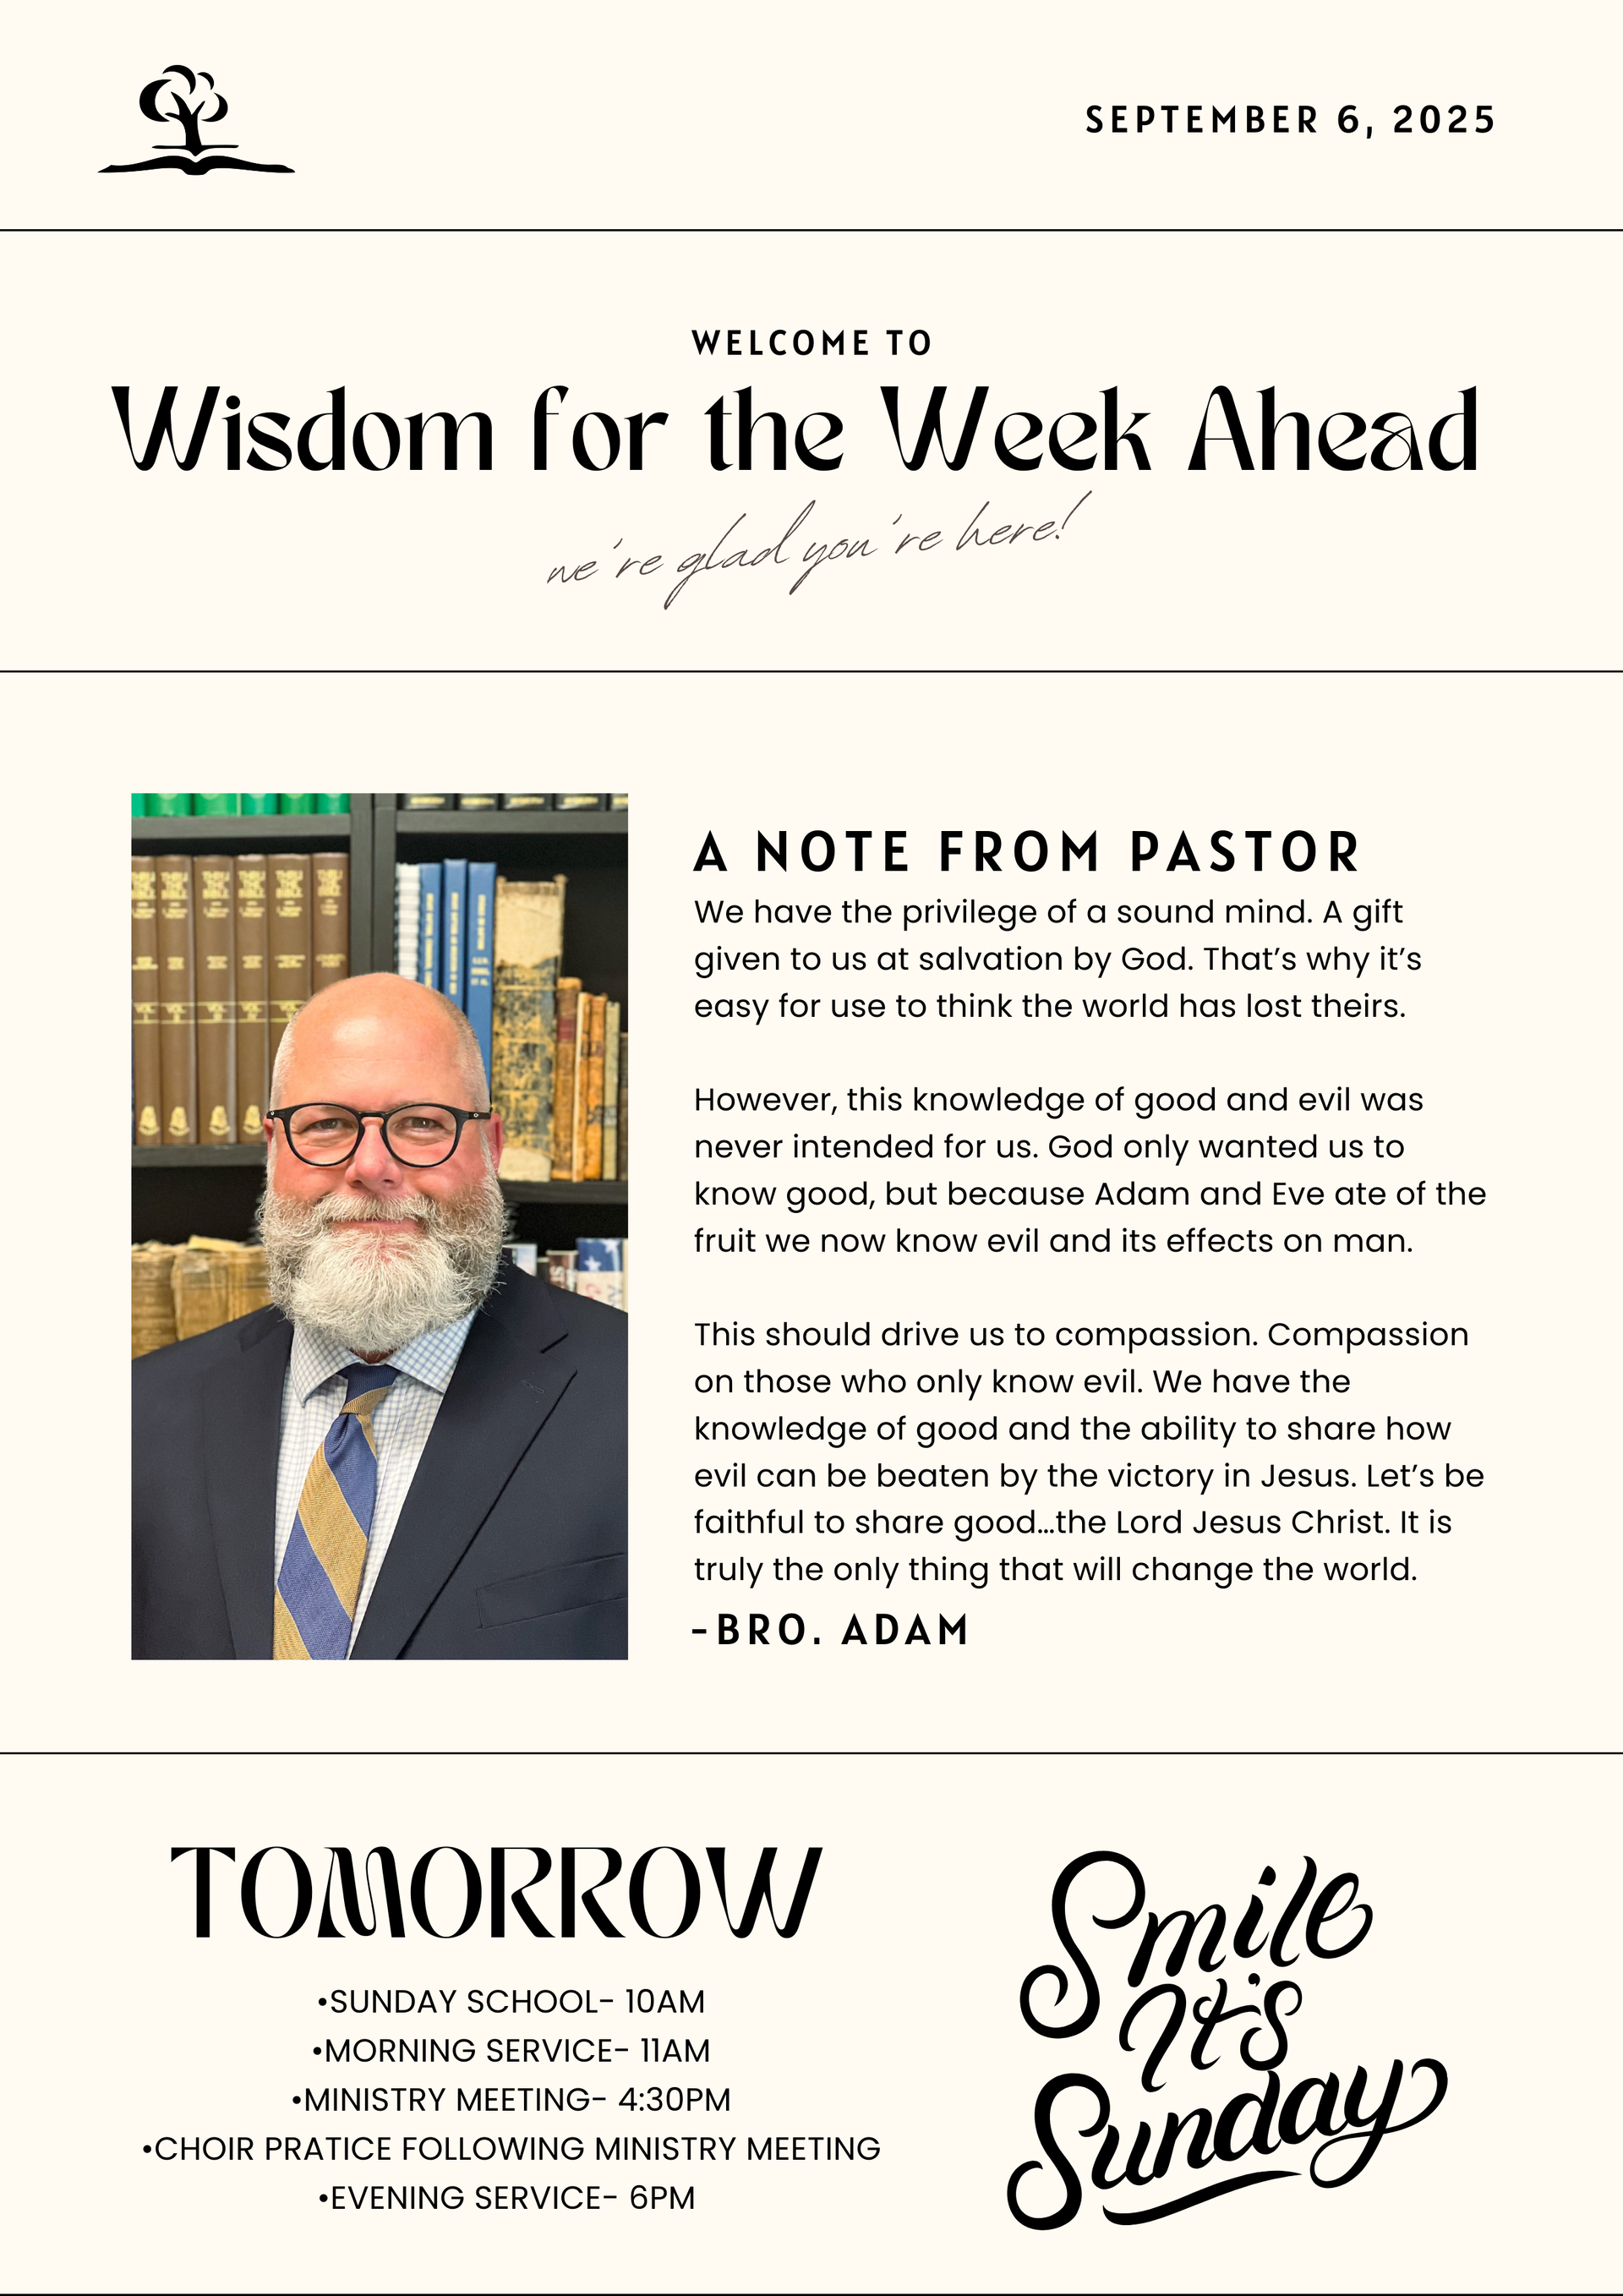 SEPTEMBER 6, 2025
WELCOME TO
Wisdom for the Week Ahead
we're glad you're here!
A NOTE FROM PASTOR
We have the privilege of a sound mind. A gift
given to us at salvation by God. That’s why it’s
easy for use to think the world has lost theirs.
However, this knowledge of good and evil was
never intended for us. God only wanted us to
know good, but because Adam and Eve ate of the
fruit we now know evil and its effects on man.
This should drive us to compassion. Compassion
on those who only know evil. We have the
knowledge of good and the ability to share how
evil can be beaten by the victory in Jesus. Let’s be
faithful to share good...the Lord Jesus Christ. It is
truly the only thing that will change the world.
-BRO. ADAM
TOMORROW
•SUNDAY SCHOOL- 10AM
•MORNING SERVICE- 11AM
•MINISTRY MEETING- 4:30PM
•CHOIR PRATICE FOLLOWING MINISTRY MEETING
•EVENING SERVICE- 6PM
Smile
It's
Sunday